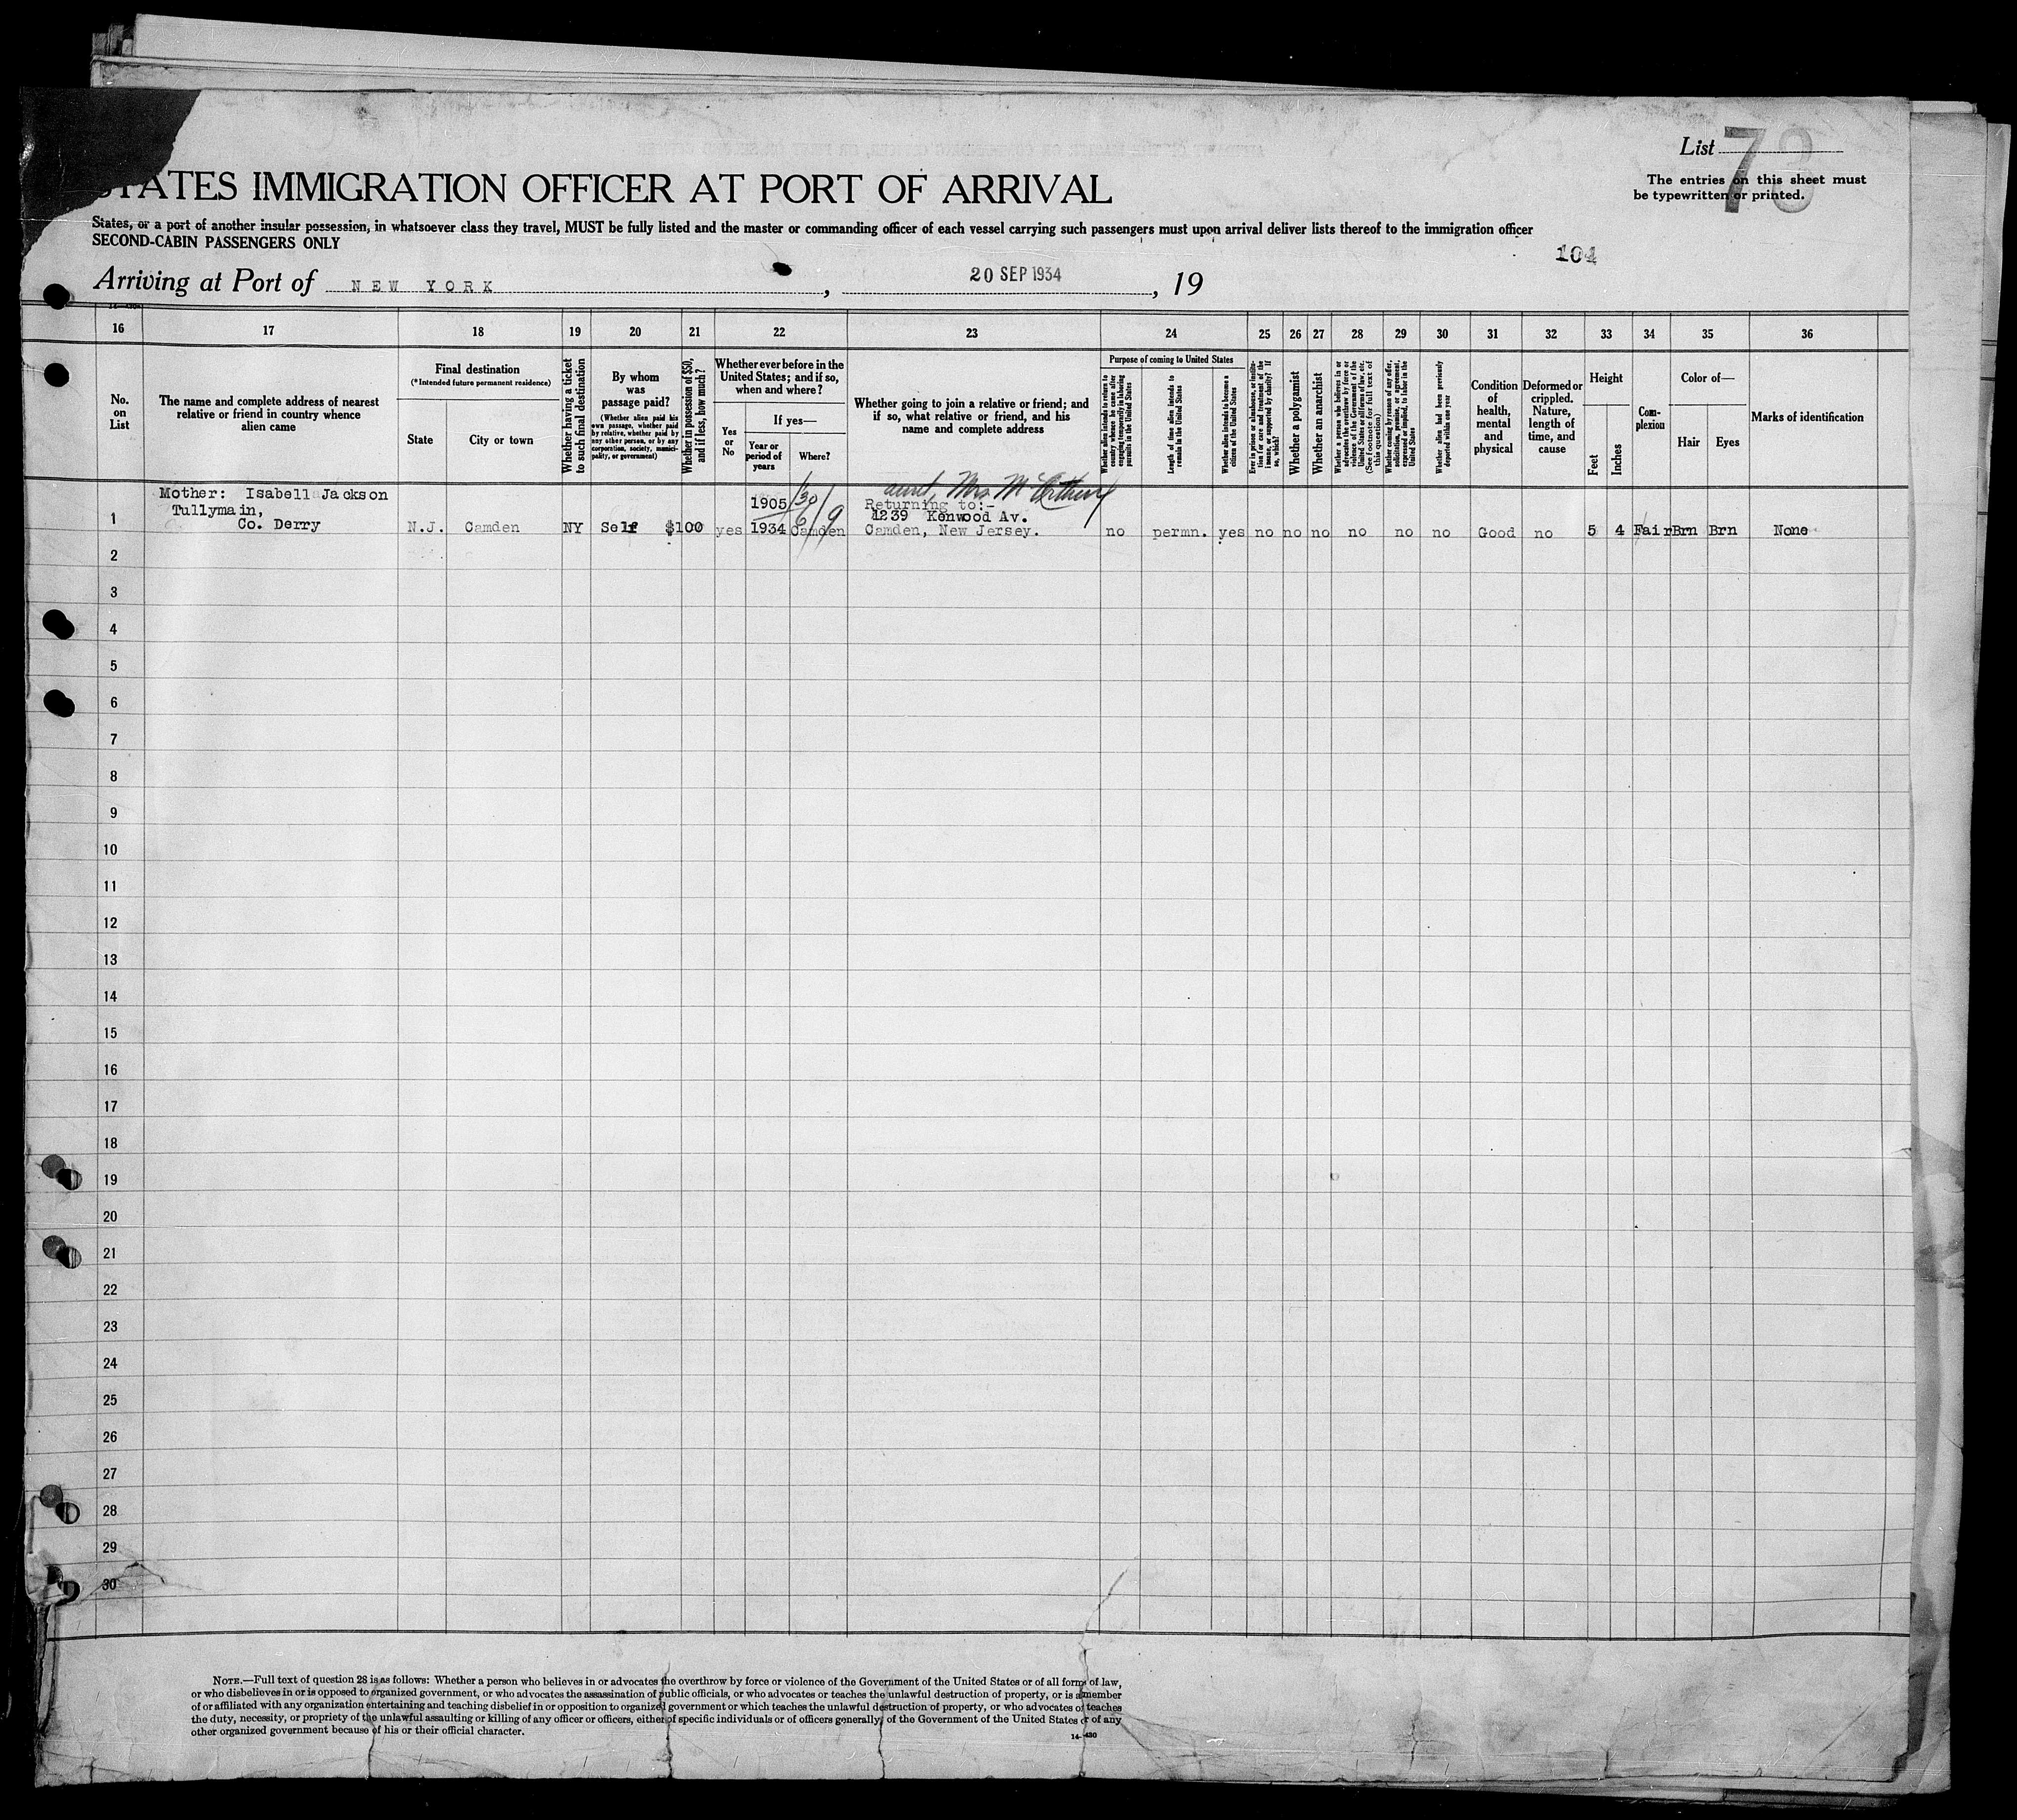 List 78
The entries on this sheet must
be typewritten or printed.
STATES IMMIGRATION OFFICER AT PORT OF ARRIVAL
States, or a port of another insular possession, in whatsoever class they travel, MUST be fully listed and the master or commanding officer of each vessel carrying such passengers must upon arrival deliver lists thereof to the immigration officer
SECOND-CABIN PASSENGERS ONLY
104
Arriving at Port of NEW YORK, 20 SEP 1934, 19
16 17 18 19 20 21 22 23 24 25 26 27 28 29 30 31 32 33 34 35 36
No.
on
List
The name and complete address of nearest
relative or friend in country whence
alien came
Final destination
(*Intended future permanent residence)
State
City or town
Whether having a ticket
to such final destination
By whom
was
passage paid?
(Whether alien paid his
own passage, whether paid
by relative, whether paid by
any other person, or by any
corporation, society, munici-
pality, or government)
Whether in possession of $50,
and if less, how much?
Whether ever before in the
United States; and if so,
when and where?
Yes
or
No
If yes—
Year or
period of
years
Where?
Whether going to join a relative or friend; and
if so, what relative or friend, and his
name and complete address
Purpose of coming to United States
Whether alien intends to return to
country whence he came after
engaging temporarily in laboring
pursuits in the United States
Length of time alien intends to
remain in the United States
Whether alien intends to become a
citizen of the United States
Ever in prison or almshouse, or institu-
tion for care and treatment of the
insane, or supported by charity? If
so, which?
Whether a polygamist
Whether an anarchist
Whether a person who believes in or
advocates the overthrow by force or
violence of the Government of the
United States or all forms of law, etc.
(See footnote for full text of
this question)
Whether coming by reason of any offer,
solicitation, promise, or agreement,
expressed or implied, to labor in the
United States
Whether alien had been previously
deported within one year
Condition
of
health,
mental
and
physical
Deformed or
crippled.
Nature,
length of
time, and
cause
Height
Feet
Inches
Com-
plexion
Color of—
Hair
Eyes
Marks of identification
Mother: Isabell Jackson
Tullymain,
Co. Derry
1 N.J. Camden NY Self $100 yes
1905
1934 Camden
30/6/9
aunt, Mrs. McArthur
Returning to:-
1239 Kenwood Av.
Camden, New Jersey.
no permn. yes no no no no no no Good no 5 4 Fair Brn Brn None
2
3
4
5
6
7
8
9
10
11
12
13
14
15
16
17
18
19
20
21
22
23
24
25
26
27
28
29
30
NOTE.—Full text of question 28 is as follows: Whether a person who believes in or advocates the overthrow by force or violence of the Government of the United States or of all forms of law,
or who disbelieves in or is opposed to organized government, or who advocates the assassination of public officials, or who advocates or teaches the unlawful destruction of property, or is a member
of or affiliated with any organization entertaining and teaching disbelief in or opposition to organized government or which teaches the unlawful destruction of property, or who advocates or teaches
the duty, necessity, or propriety of the unlawful assaulting or killing of any officer or officers, either of specific individuals or of officers generally, of the Government of the United States or of any
other organized government because of his or their official character.
14-430